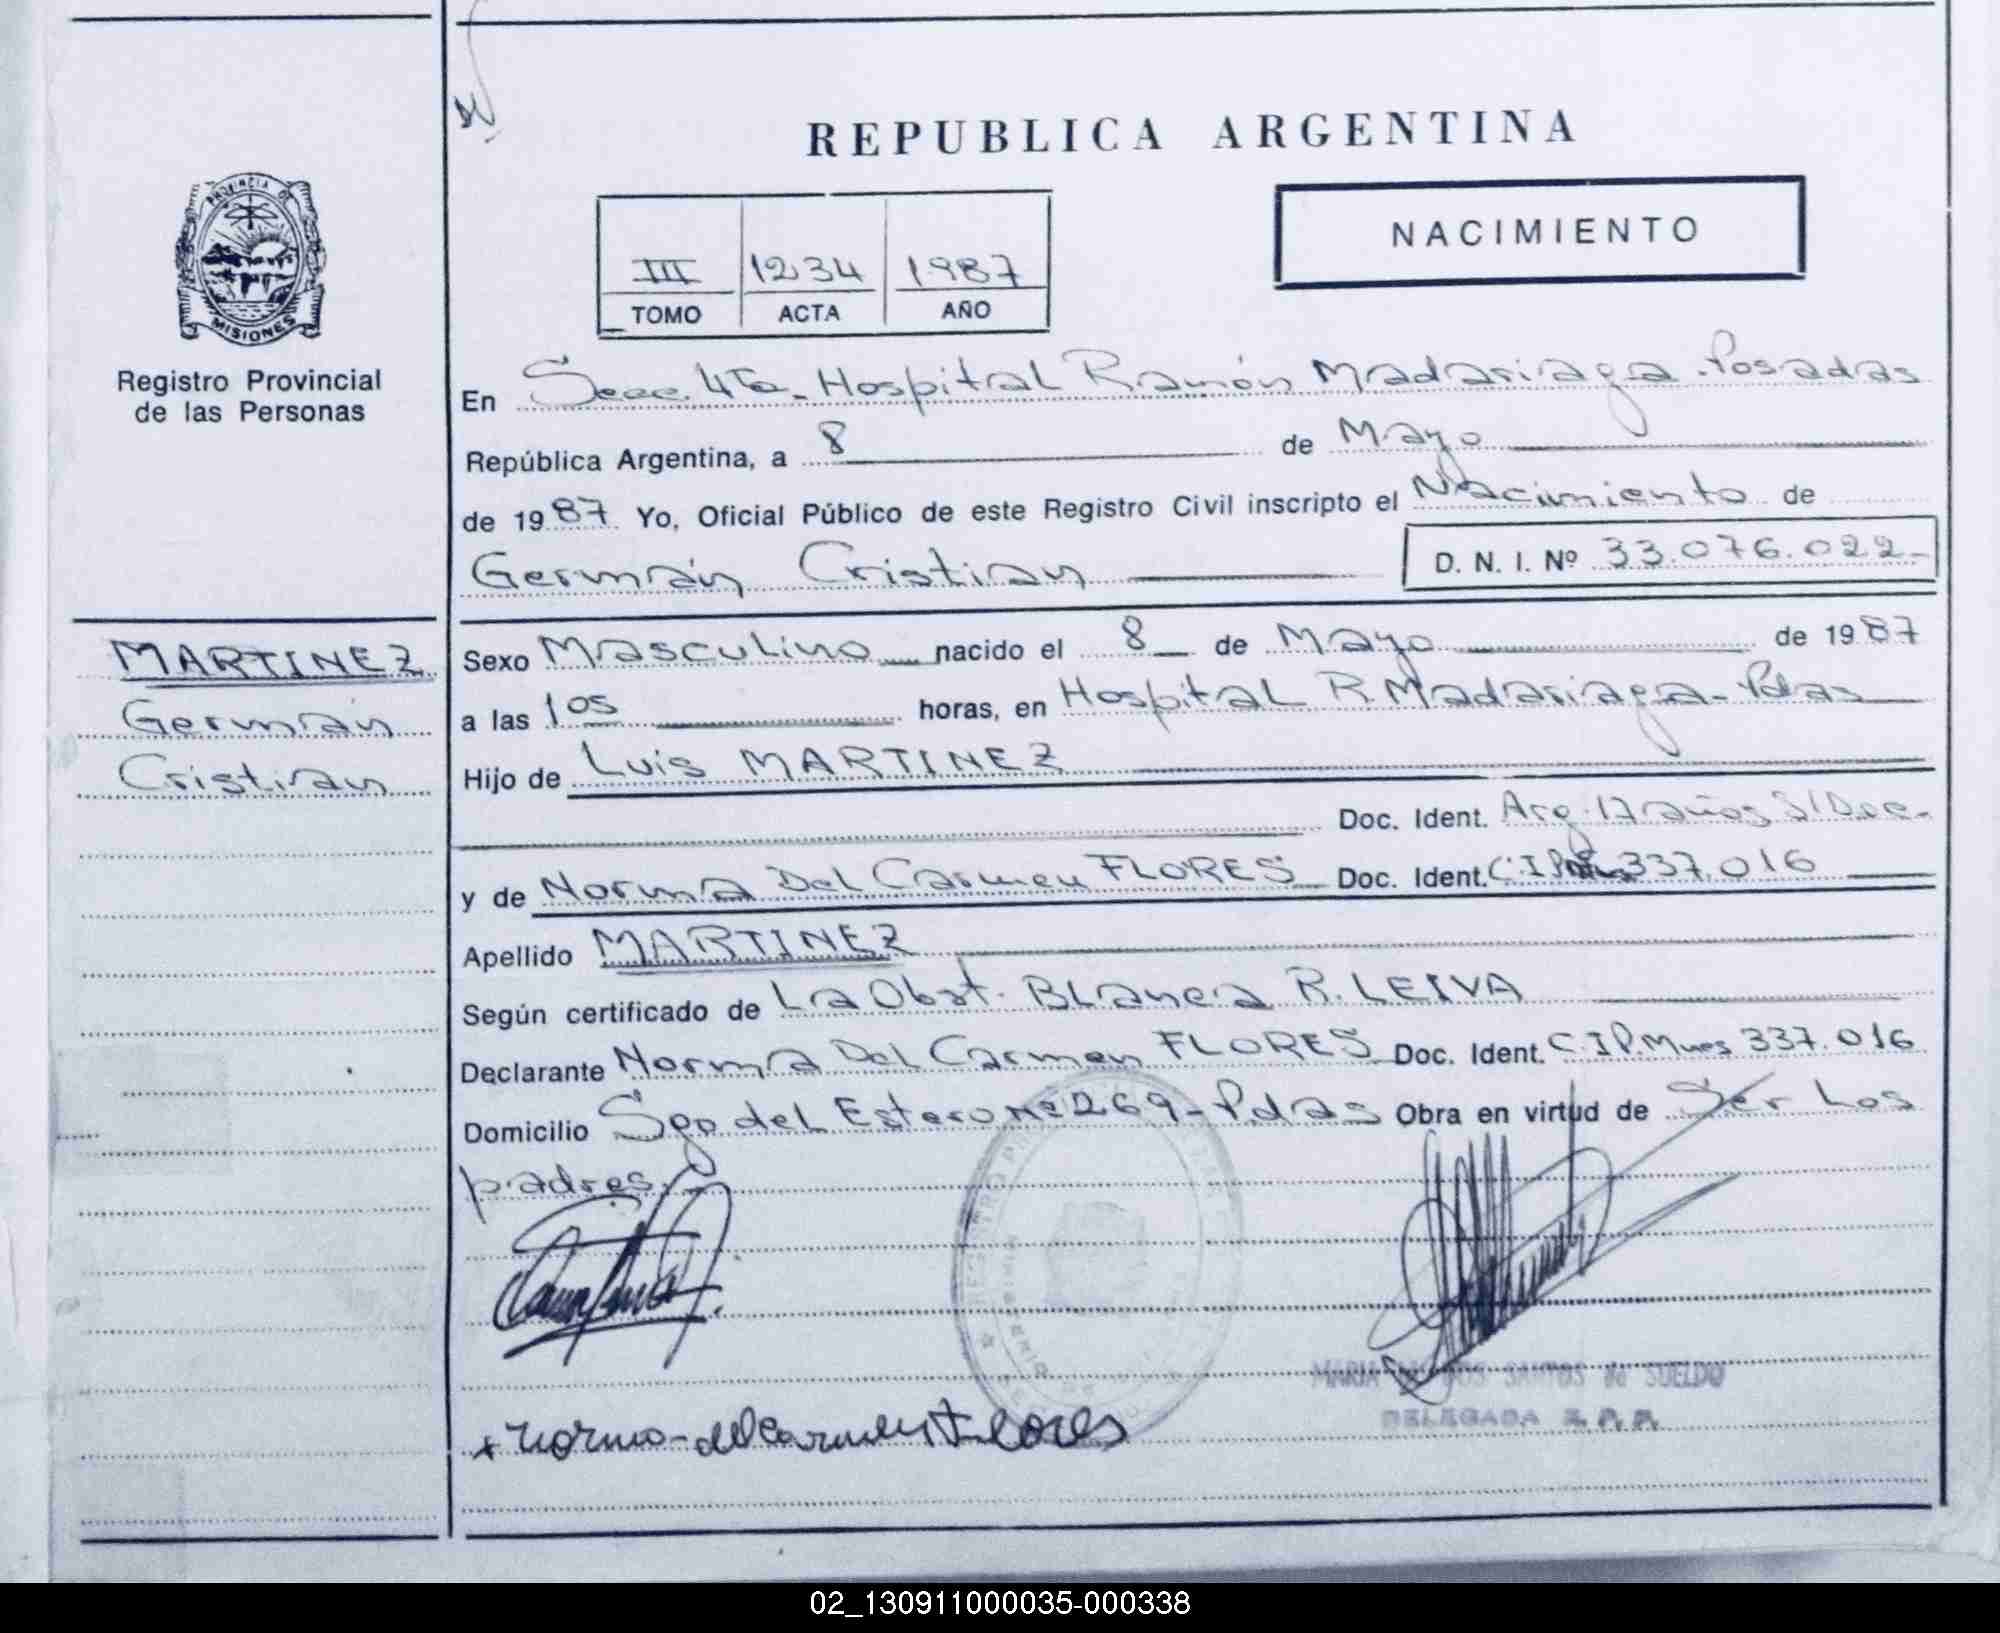 REPUBLICA ARGENTINA
NACIMIENTO
III 1234 1987
TOMO ACTA AÑO
PROVINCIA DE
MISIONES
Registro Provincial
de las Personas
MARTINEZ
Germán
Cristian
En Secc. 4ta. Hospital Ramón Madariaga. Posadas
República Argentina, a 8 de Mayo
de 1987 Yo, Oficial Público de este Registro Civil inscripto el Nacimiento de
Germán Cristian D. N. I. Nº 33.076.022-
Sexo Masculino nacido el 8 de Mayo de 1987
a las 1 05 horas, en Hospital R. Madariaga - Pdas
Hijo de Luis MARTINEZ
Doc. Ident. Arg. 17 años S/Doc.-
y de Norma Del Carmen FLORES Doc. Ident. C.I.P. 337.016
Apellido MARTINEZ
Según certificado de La Obst. Blanca R. LEIVA
Declarante Norma Del Carmen FLORES Doc. Ident. C.I.P. Mnes 337.016
Domicilio Sgo del Estero Nº 269 - Pdas Obra en virtud de Ser Los
padres.
MARIA DOS SANTOS de SUELDO
DELEGADA R. P. P.
x norma del carmen Flores
02_130911000035-000338